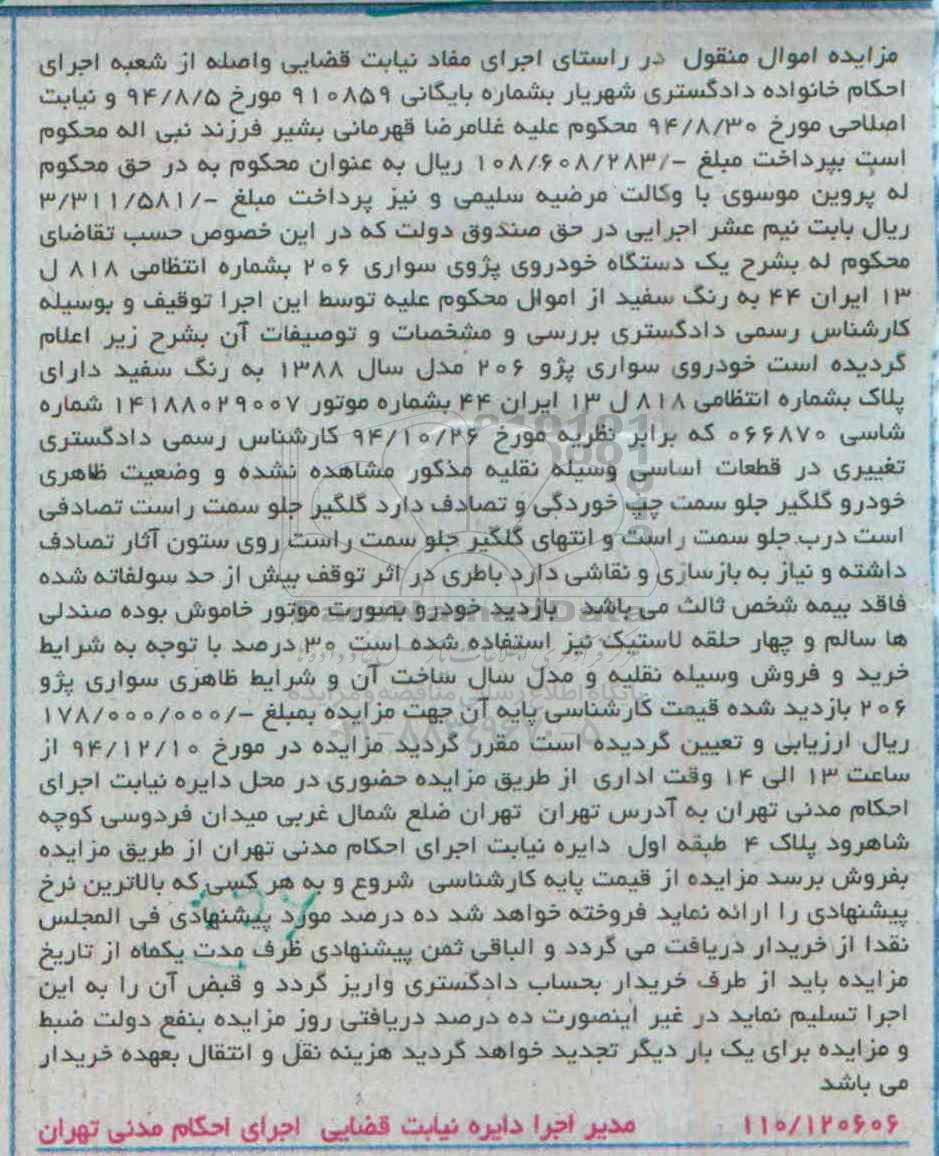 مزایده اموال منقول در راستای اجرای مفاد نیابت قضایی واصله از شعبه اجرای
احکام خانواده دادگستری شهریار بشماره بایگانی ۹۱۰۸۵۹ مورخ ۹۴/۸/۵ و نیابت
اصلاحی مورخ ۹۴/۸/۳۰ محکوم علیه غلامرضا قهرمانی بشیر فرزند نبی اله محکوم
است بپرداخت مبلغ -/۱۰۸/۶۰۸/۲۸۳ ریال به عنوان محکوم به در حق محکوم
له پروین موسوی با وکالت مرضیه سلیمی و نیز پرداخت مبلغ -/۳/۳۱۱/۵۸۱
ریال بابت نیم عشر اجرایی در حق صندوق دولت که در این خصوص حسب تقاضای
محکوم له بشرح یک دستگاه خودروی پژوی سواری ۲۰۶ بشماره انتظامی ۸۱۸ ل
۱۳ ایران ۴۴ به رنگ سفید از اموال محکوم علیه توسط این اجرا توقیف و بوسیله
کارشناس رسمی دادگستری بررسی و مشخصات و توصیفات آن بشرح زیر اعلام
گردیده است خودروی سواری پژو ۲۰۶ مدل سال ۱۳۸۸ به رنگ سفید دارای
پلاک بشماره انتظامی ۸۱۸ ل ۱۳ ایران ۴۴ بشماره موتور ۱۴۱۸۸۰۲۹۰۰۷ شماره
شاسی ۰۶۶۸۷۰ که برابر نظریه مورخ ۹۴/۱۰/۲۶ کارشناس رسمی دادگستری
تغییری در قطعات اساسی وسیله نقلیه مذکور مشاهده نشده و وضعیت ظاهری
خودرو گلگیر جلو سمت چپ خوردگی و تصادف دارد گلگیر جلو سمت راست تصادفی
است درب جلو سمت راست و انتهای گلگیر جلو سمت راست روی ستون آثار تصادف
داشته و نیاز به بازسازی و نقاشی دارد باطری در اثر توقف بیش از حد سولفاته شده
فاقد بیمه شخص ثالث می باشد بازدید خودرو بصورت موتور خاموش بوده صندلی
ها سالم و چهار حلقه لاستیک نیز استفاده شده است ۳۰ درصد با توجه به شرایط
خرید و فروش وسیله نقلیه و مدل سال ساخت آن و شرایط ظاهری سواری پژو
۲۰۶ بازدید شده قیمت کارشناسی پایه آن جهت مزایده بمبلغ -/۱۷۸/۰۰۰/۰۰۰
ریال ارزیابی و تعیین گردیده است مقرر گردید مزایده در مورخ ۹۴/۱۲/۱۰ از
ساعت ۱۳ الی ۱۴ وقت اداری از طریق مزایده حضوری در محل دایره نیابت اجرای
احکام مدنی تهران به آدرس تهران تهران ضلع شمال غربی میدان فردوسی کوچه
شاهرود پلاک ۴ طبقه اول دایره نیابت اجرای احکام مدنی تهران از طریق مزایده
بفروش برسد مزایده از قیمت پایه کارشناسی شروع و به هر کسی که بالاترین نرخ
پیشنهادی را ارائه نماید فروخته خواهد شد ده درصد مورد پیشنهادی فی المجلس
نقدا از خریدار دریافت می گردد و الباقی ثمن پیشنهادی ظرف مدت یکماه از تاریخ
مزایده باید از طرف خریدار بحساب دادگستری واریز گردد و قبض آن را به این
اجرا تسلیم نماید در غیر اینصورت ده درصد دریافتی روز مزایده بنفع دولت ضبط
و مزایده برای یک بار دیگر تجدید خواهد گردید هزینه نقل و انتقال بعهده خریدار
می باشد
۱۱۰/۱۲۰۶۰۶ مدیر اجرا دایره نیابت قضایی اجرای احکام مدنی تهران